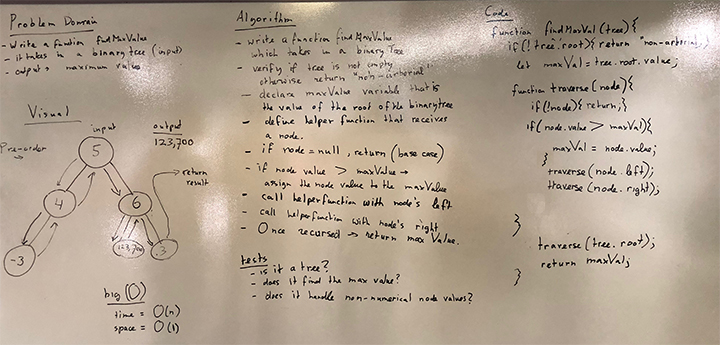 Problem Domain
- Write a function findMaxValue
- it takes in a binary tree (input)
- output → maximum value
Visual
input
output
123,700
Pre-order
→
5
4
6
-3
123,700
3
return
result
big (O)
time = O(n)
space = O(1)
Algorithm
- write a function findMaxValue
which takes in a binary Tree
- verify if tree is not empty
otherwise return "non-arborial"
- declare maxValue variable that is
the value of the root of the binarytree
- define helper function that receives
a node.
- if node = null, return (base case)
- if node value > maxValue →
assign the node value to the maxValue
- call helperfunction with node's left
- call helperfunction with node's right
- Once recursed → return max Value.
tests
- is it a tree?
- does it find the max value?
- does it handle non-numerical node values?
Code
function findMaxVal (tree) {
if (! tree.root) { return "non-arborial";}
let maxVal = tree.root.value;
function traverse (node) {
if (!node) { return; }
if (node.value > maxVal) {
maxVal = node.value;
}
traverse (node.left);
traverse (node.right);
}
traverse (tree.root);
return maxVal;
}